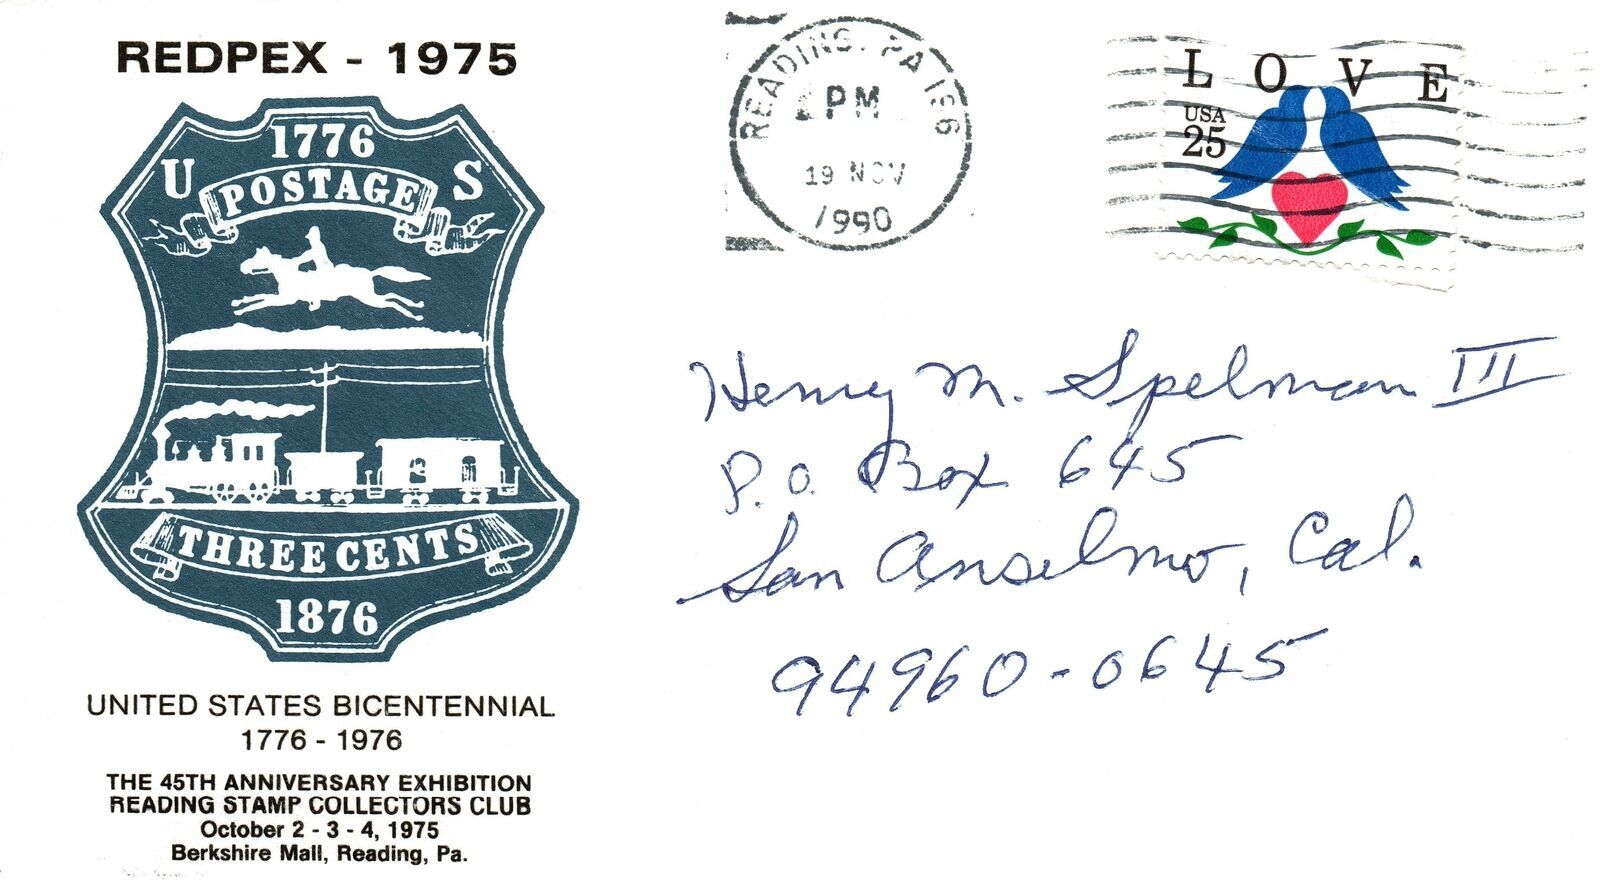 REDPEX - 1975
1776
U S
POSTAGE
THREE CENTS
1876
UNITED STATES BICENTENNIAL
1776 - 1976
THE 45TH ANNIVERSARY EXHIBITION
READING STAMP COLLECTORS CLUB
October 2 - 3 - 4, 1975
Berkshire Mall, Reading, Pa.
READING, PA 196
PM
19 NOV
1990
LOVE
USA
25
Henry M. Spelman III
P.O. Box 645
San Anselmo, Cal.
94960-0645